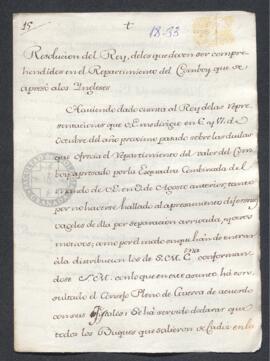 15
18-33
Resolucion del Rey, delos que deven ser compre-
hendidos en el Repartimiento del Comboy que se
apresó alos Ingleses.
Haviendo dado cuenta al Rey delas repre-
sentaciones que me dirigie en 6 y 17 de
Octubre del año proximo pasado sobre las dudas
que ofrecia el repartimiento del valor del Com-
boy apresado por la Esquadra Combinada del
mando de V. en 9 de Agosto anterior; tanto
por no haverse hallado al apresamiento diferentes
vageles de ella por separacion, arrivada, y otros
motivos; como por el modo en que han de entrar
á la distribucion los de S.M. conforman-
dose S.M. con lo que en este asunto ha con-
sultado el Consejo Pleno de Guerra de acuerdo
con sus Fiscales: Se ha servido declarar que
todos los Buques que salieron de Cadiz en la